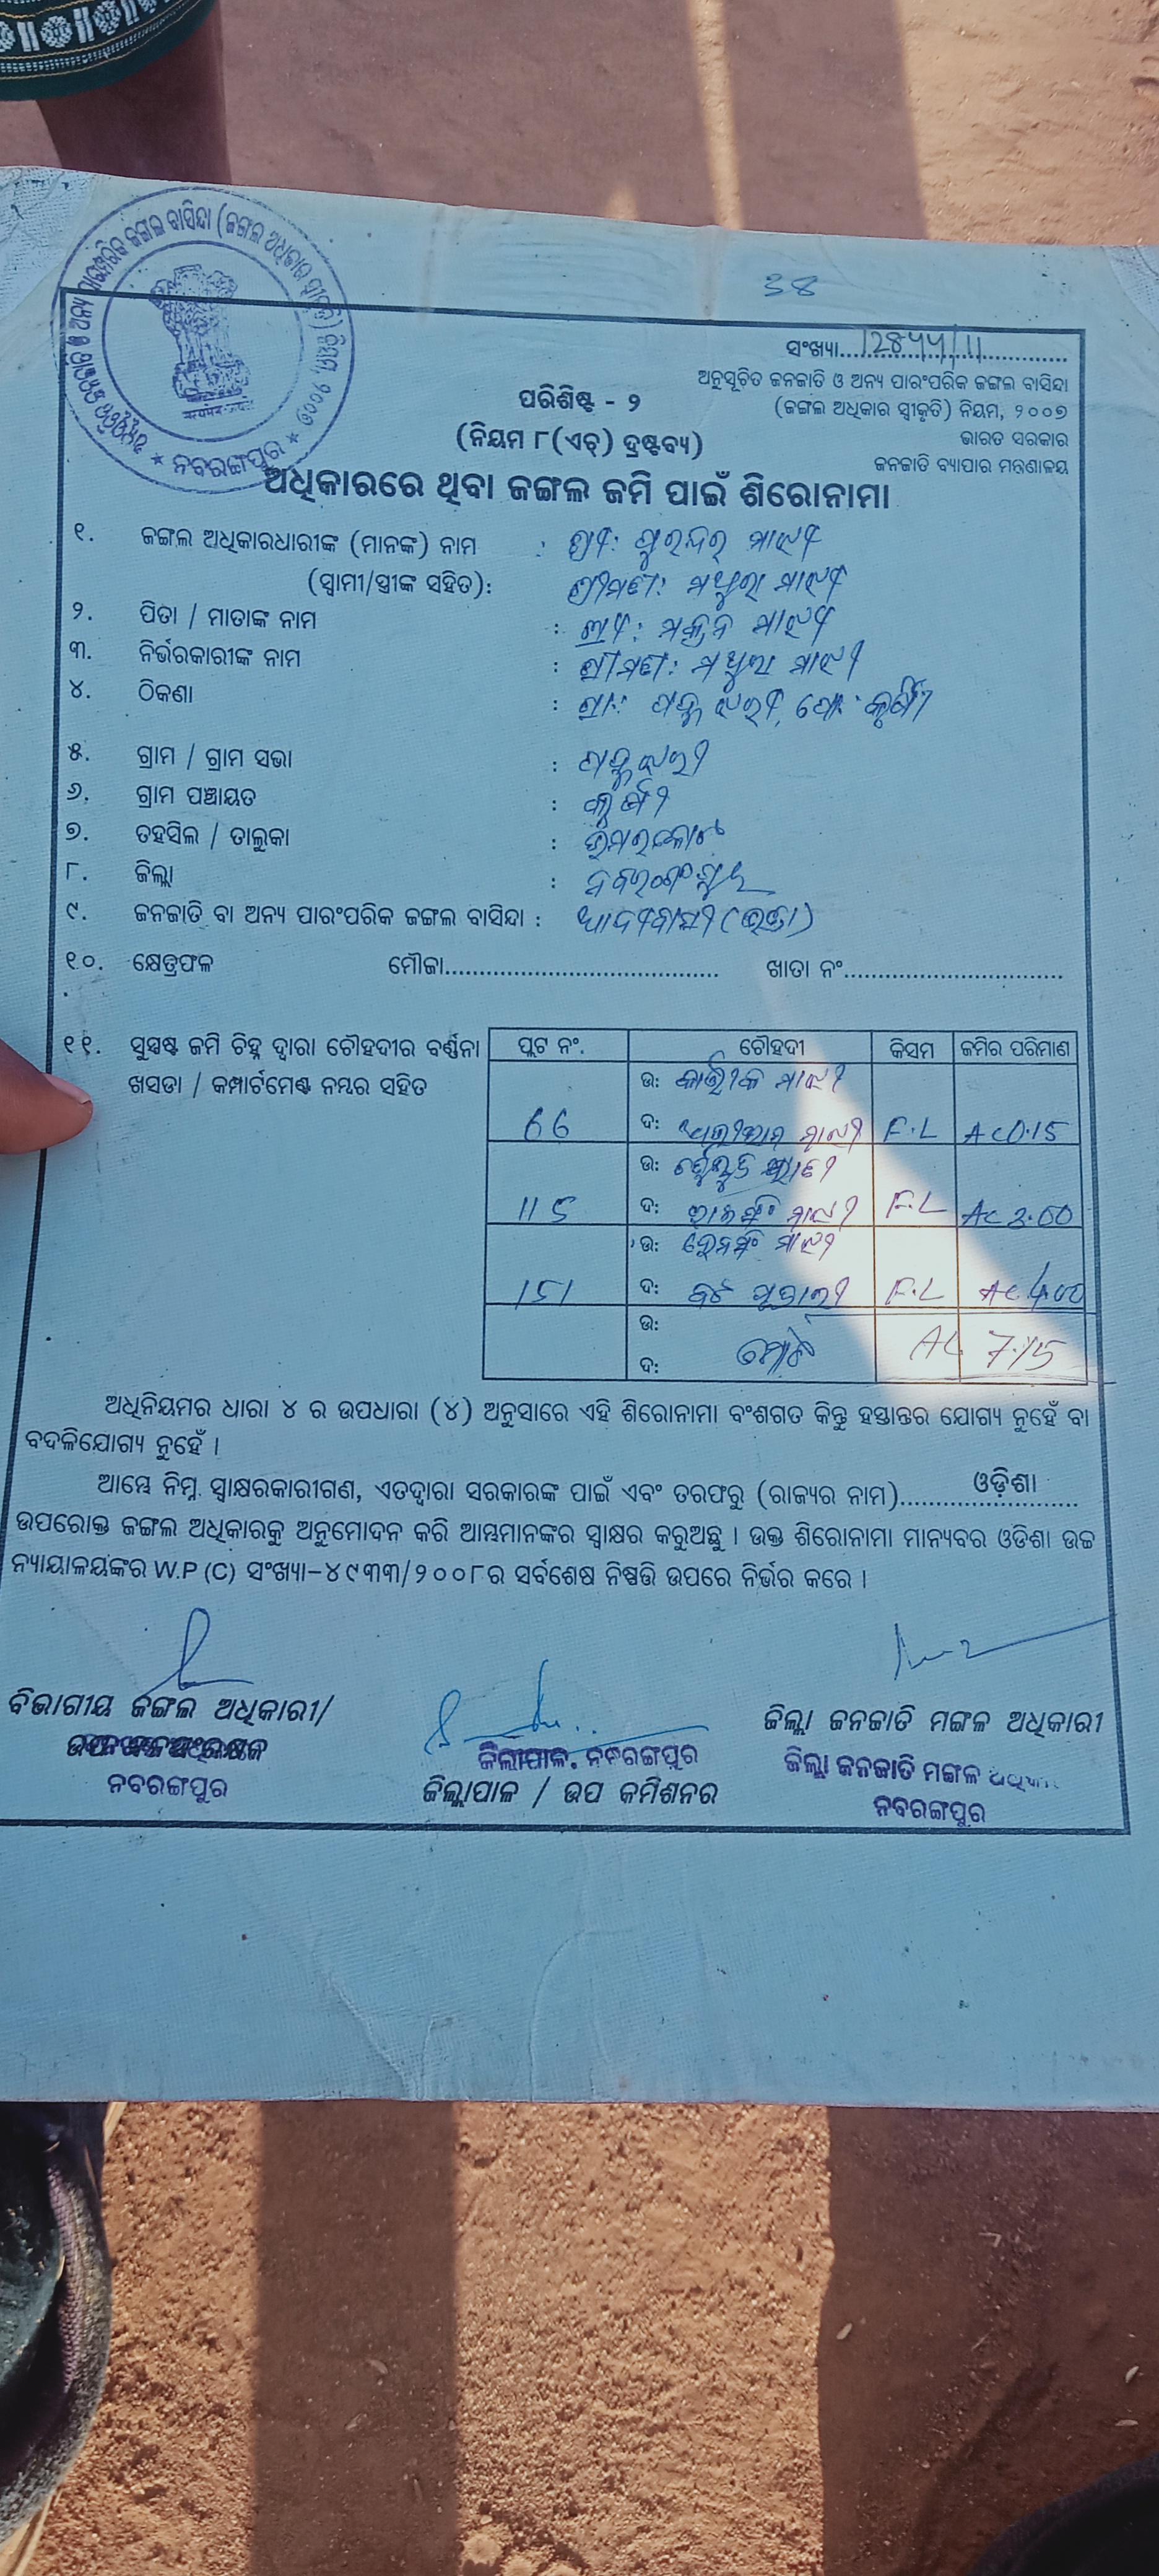 ଅନୁସୂଚିତ ଜନଜାତି ଓ ଅନ୍ୟ ପାରଂପରିକ ଜଙ୍ଗଲ ବାସିନ୍ଦା (ଜଙ୍ଗଲ ଅଧିକାର ସ୍ୱୀକୃତି) ନିୟମ, ୨୦୦୭ * ନବରଙ୍ଗପୁର *
38
ସଂଖ୍ୟା
ଅନୁସୂଚିତ ଜନଜାତି ଓ ଅନ୍ୟ ପାରଂପରିକ ଜଙ୍ଗଲ ବାସିନ୍ଦା
(ଜଙ୍ଗଲ ଅଧିକାର ସ୍ୱୀକୃତି) ନିୟମ, ୨୦୦୭
ଭାରତ ସରକାର
ଜନଜାତି ବ୍ୟାପାର ମନ୍ତ୍ରଣାଳୟ
ପରିଶିଷ୍ଟ - ୨
(ନିୟମ ୮(ଏଚ୍) ଦ୍ରଷ୍ଟବ୍ୟ)
ଅଧିକାରରେ ଥିବା ଜଙ୍ଗଲ ଜମି ପାଇଁ ଶିରୋନାମା
୧. ଜଙ୍ଗଲ ଅଧିକାରଧାରୀଙ୍କ (ମାନଙ୍କ) ନାମ : ଶ୍ରୀ: ପୁରନ୍ଦର ମାଝୀ
(ସ୍ୱାମୀ/ସ୍ତ୍ରୀଙ୍କ ସହିତ): ଶ୍ରୀମତୀ: ମଥୁରା ମାଝୀ
୨. ପିତା / ମାତାଙ୍କ ନାମ : ଶ୍ରୀ: ମାଝୀ
୩. ନିର୍ଭରକାରୀଙ୍କ ନାମ : ଶ୍ରୀମତୀ: ମଥୁରା ମାଝୀ
୪. ଠିକଣା : ଗ୍ରା: ପୋ:
୫. ଗ୍ରାମ / ଗ୍ରାମ ସଭା :
୬. ଗ୍ରାମ ପଞ୍ଚାୟତ :
୭. ତହସିଲ / ତାଲୁକା : ଉମରକୋଟ
୮. ଜିଲ୍ଲା : ନବରଙ୍ଗପୁର
୯. ଜନଜାତି ବା ଅନ୍ୟ ପାରଂପରିକ ଜଙ୍ଗଲ ବାସିନ୍ଦା : ଆଦିବାସୀ
୧୦. କ୍ଷେତ୍ରଫଳ ମୌଜା........................................ ଖାତା ନଂ................................
୧୧. ସୁସ୍ପଷ୍ଟ ଜମି ଚିହ୍ନ ଦ୍ୱାରା ଚୌହଦୀର ବର୍ଣ୍ଣନା
ଖସଡା / କମ୍ପାର୍ଟମେଣ୍ଟ ନମ୍ବର ସହିତ
ପ୍ଲଟ ନଂ. ଚୌହଦୀ କିସମ ଜମିର ପରିମାଣ
ଉ: କାର୍ତ୍ତୀକ ମାଝୀ
66 ଦ: ମାଝୀ F.L AC 0.15
ଉ:
115 ଦ: ମାଝୀ F.L AC 3.00
ଉ: ମାଝୀ
151 ଦ: F.L AC 4.00
ଉ:
ଦ: ମୋଟ AC 7.15
ଅଧିନିୟମର ଧାରା ୪ ର ଉପଧାରା (୪) ଅନୁସାରେ ଏହି ଶିରୋନାମା ବଂଶଗତ କିନ୍ତୁ ହସ୍ତାନ୍ତର ଯୋଗ୍ୟ ନୁହେଁ ବା
ବଦଳିଯୋଗ୍ୟ ନୁହେଁ ।
ଆମ୍ଭେ ନିମ୍ନ ସ୍ୱାକ୍ଷରକାରୀଗଣ, ଏତଦ୍ୱାରା ସରକାରଙ୍କ ପାଇଁ ଏବଂ ତରଫରୁ (ରାଜ୍ୟର ନାମ)........ଓଡ଼ିଶା........
ଉପରୋକ୍ତ ଜଙ୍ଗଲ ଅଧିକାରକୁ ଅନୁମୋଦନ କରି ଆମ୍ଭମାନଙ୍କର ସ୍ୱାକ୍ଷର କରୁଅଛୁ । ଉକ୍ତ ଶିରୋନାମା ମାନ୍ୟବର ଓଡିଶା ଉଚ୍ଚ
ନ୍ୟାୟାଳୟଙ୍କର W.P (C) ସଂଖ୍ୟା-୪୯୩୩/୨୦୦୮ର ସର୍ବଶେଷ ନିଷ୍ପତ୍ତି ଉପରେ ନିର୍ଭର କରେ ।
ବିଭାଗୀୟ ଜଙ୍ଗଲ ଅଧିକାରୀ/
ନବରଙ୍ଗପୁର
ଜିଲ୍ଲାପାଳ, ନବରଙ୍ଗପୁର
ଜିଲ୍ଲାପାଳ / ଉପ କମିଶନର
ଜିଲ୍ଲା ଜନଜାତି ମଙ୍ଗଳ ଅଧିକାରୀ
ଜିଲ୍ଲା ଜନଜାତି ମଙ୍ଗଳ
ନବରଙ୍ଗପୁର